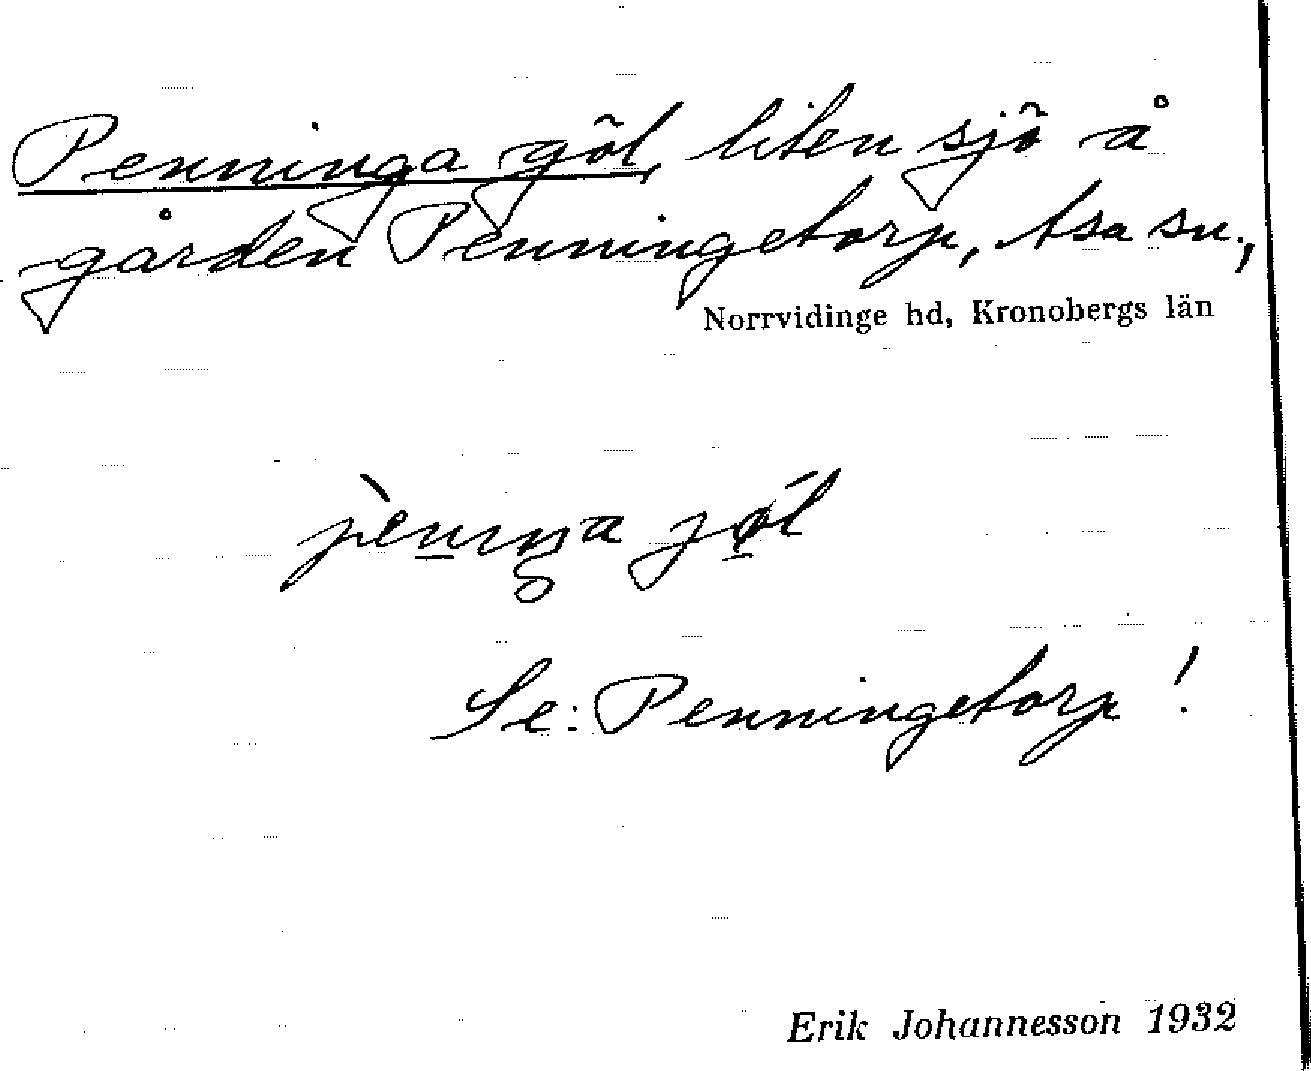 Penninga göl, liten sjö å
gården Penningetorp, Asa sn.,
Norrvidinge hd, Kronobergs län
Se: Penningetorp!
Erik Johannesson 1932